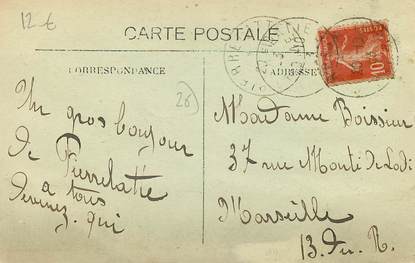 12-€
CARTE POSTALE
CORRESPONDANCE
ADRESSE
(26)
10
Un gros bonjour
de Pierrelatte
a tous
devinez. qui
Madame Boissier
37 rue Monti de Lodi
Marseille
B. du R.